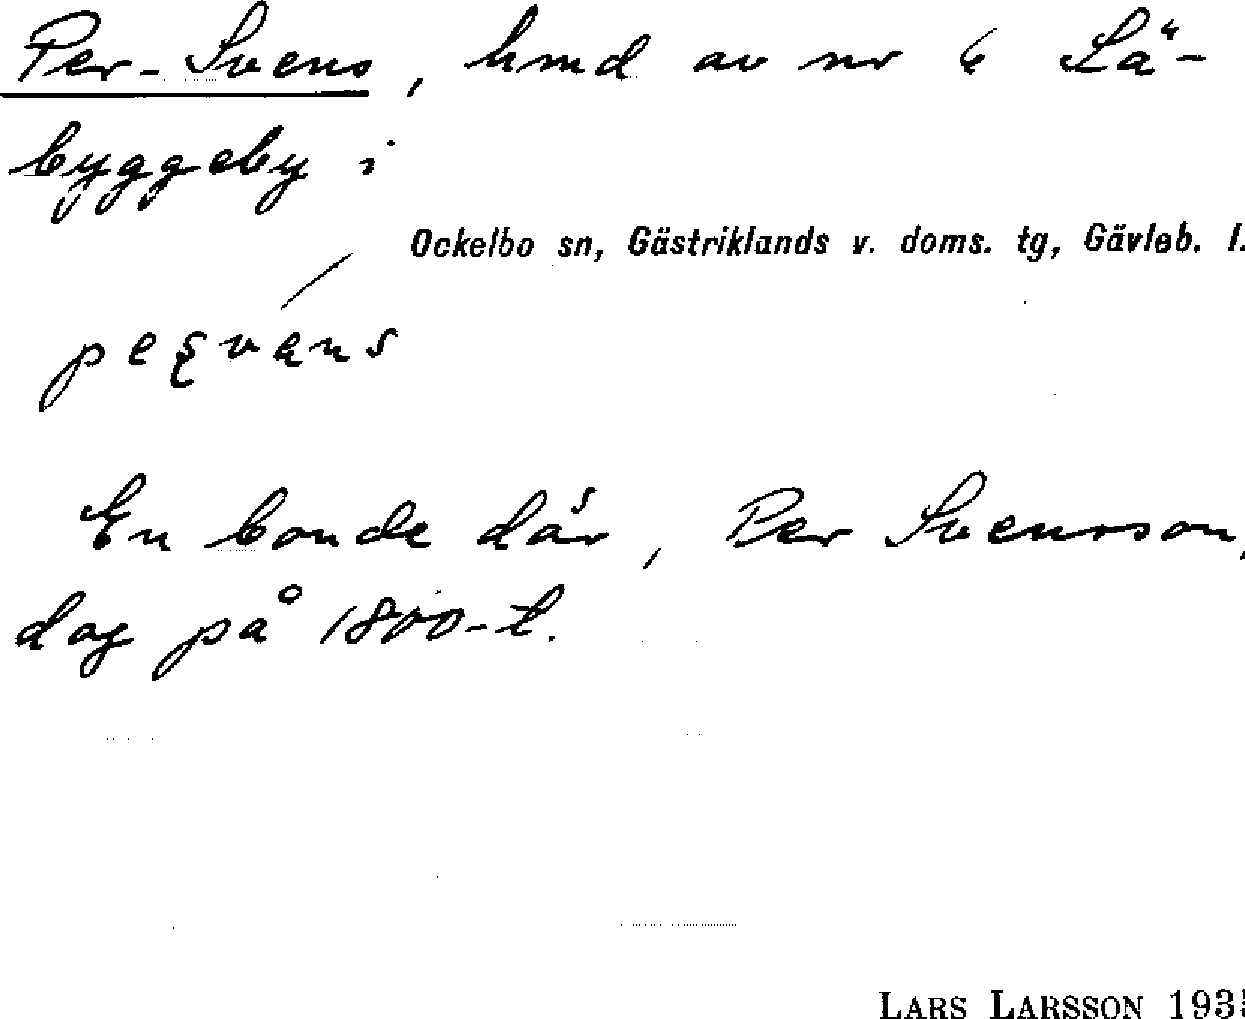 Per-Svens, hmd av nr 6 Lä-
byggeby i
Ockelbo sn, Gästriklands v. doms. tg, Gävleb. l.
En bonde där, Per Svensson,
dog på 1800-t.
LARS LARSSON 193